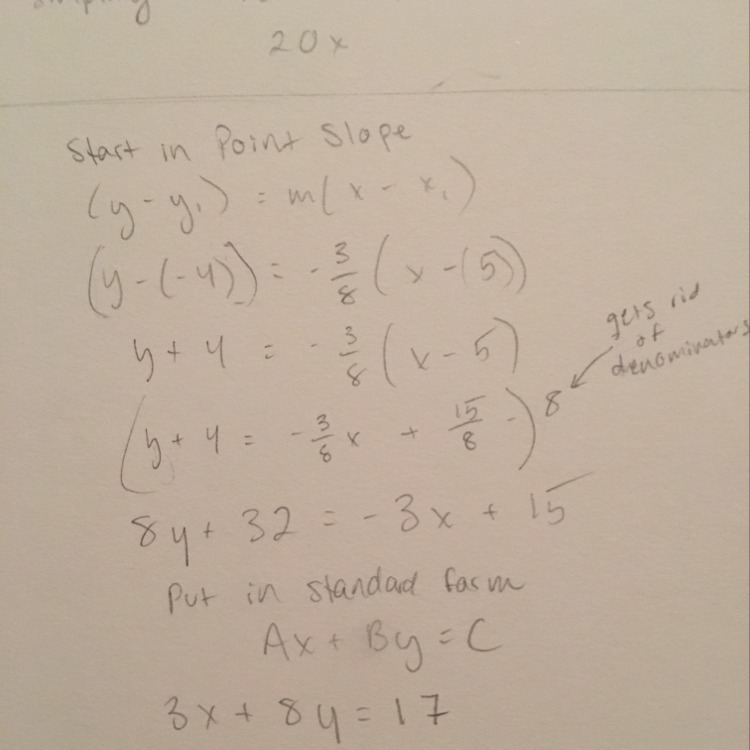 20x
Start in Point Slope
(y - y₁) = m(x - x₁)
(y - (-4)) = -3/8 (x - (5))
y + 4 = -3/8 (x - 5)
(y + 4 = -3/8 x + 15/8) 8
gets rid
of
denominators
8y + 32 = -3x + 15
Put in standard form
Ax + By = C
3x + 8y = 17